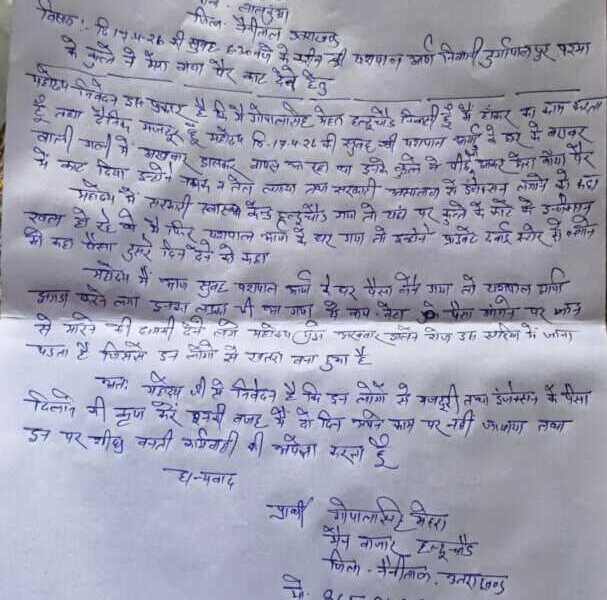 लालकुआ
जिला- नैनीताल उत्तराखण्ड
विषय:- दि 19.4.26 की सुबह 6:30 बजे के करीब श्री यशपाल आर्य निवासी दुर्गापालपुर परमा
के कुत्ते ने मेरा बाया पैर काट देने हेतु
महोदय निवेदन इस प्रकार है कि मै गोपालसिंह मेहरा हल्दूचौड़ निवासी हूँ मै हॉकर का काम करता
हूँ तथा दैनिक मजदूर हूँ महोदय दि. 19.4.26 की सुबह श्री यशपाल आर्य के घर के बराबर
वाली गली में अखबार डालकर वापस आ रहा था उनके कुत्ते ने पीछे आकर मेरा बाँया पैर
में काट दिया उन्होने न तेल लगाया तथा सरकारी अस्पताल में इंजेक्शन लगाने को कहा
महोदय मैं सरकारी स्वास्थ्य केंद्र हल्दूचौड़ गया तो वहां पर कुत्ते के काटे के इन्जेक्शन
खत्म हो रहे थे मै फिर यशपाल आर्य के घर गया तो उन्होने प्राइवेट दवाई स्टोर से लेने
को कहा पैसा दुसरे दिन देने को कहा
महोदय मैं आज सुबह यशपाल आर्य के घर पैसा लेने गया तो यशपाल आर्य
झगड़ा करने लगा उनका लड़का भी आ गया वे बाप बेटा पैसा मांगने पर जान
से मारने की धमकी देने लगे महोदय मुझे अखबार डालने रोज उस एरिया में जाना
पड़ता है जिससे इन लोगों से खतरा बना हुआ है
अतः महोदय जी से निवेदन है कि इन लोगो से मजदूरी तथा इंजेक्शन के पैसा
दिलाने की कृपा करें इनकी वजह से मै दो दिन अपने काम पर नहीं जा पाया तथा
इन पर शीघ्र कानूनी कार्यवाही की अपेक्षा करता हूँ
धन्यवाद
प्रार्थी गोपालसिंह मेहरा
मैन बाजार हल्दूचौड़
जिला - नैनीताल, उत्तराखण्ड
मो.